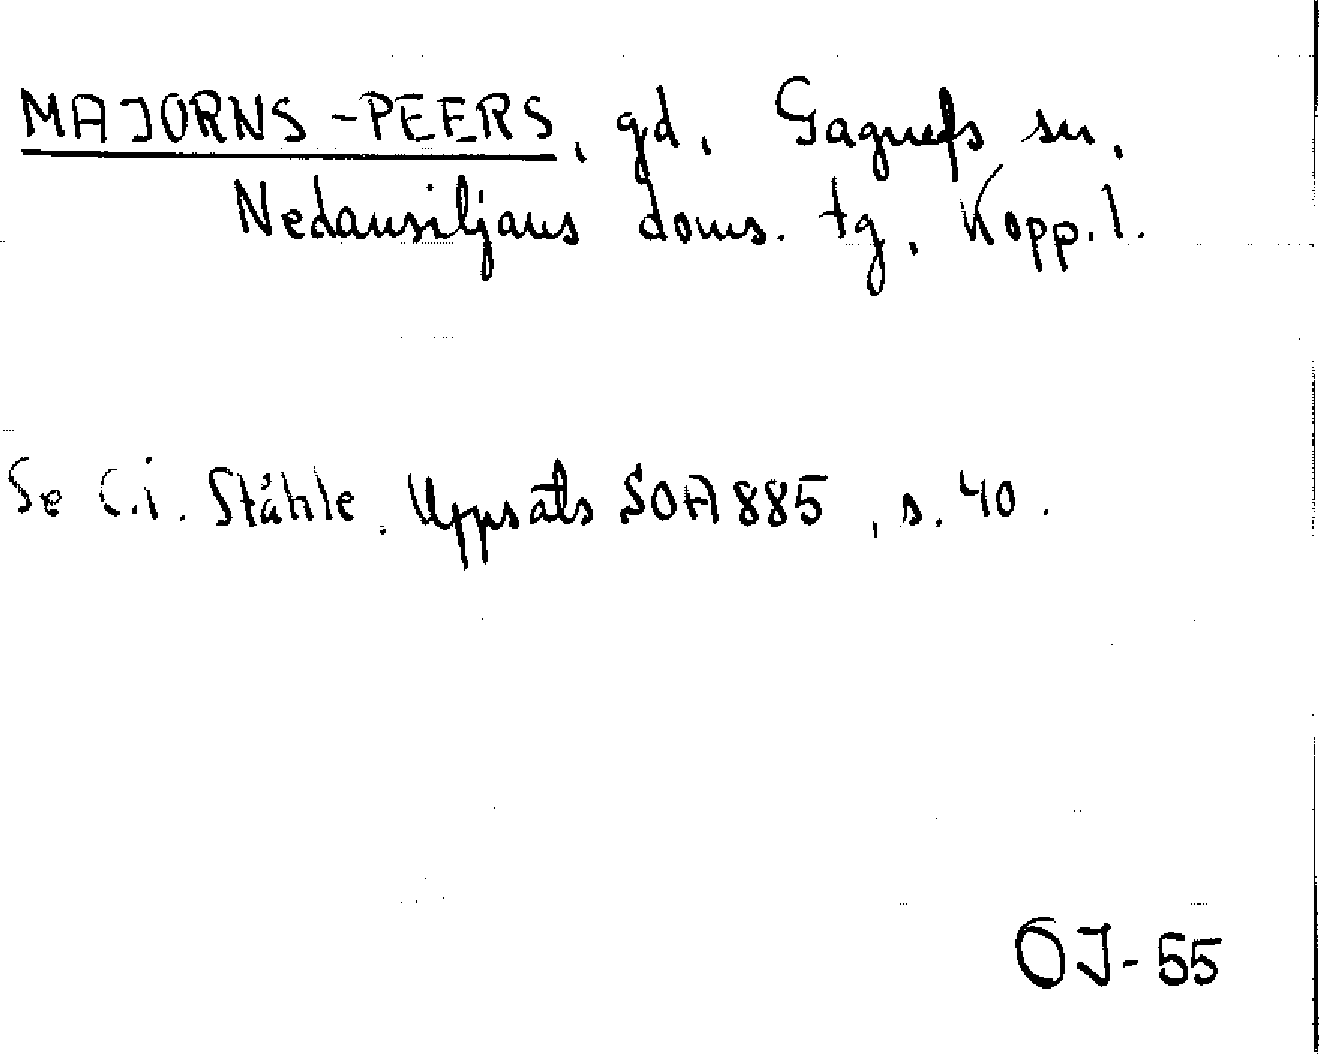 MAJORNS-PEERS, gd, Gagnefs sn,
Nedansiljans doms. tg, Kopp. l.
Se C.i. Ståhle. Uppsats SOA 885, s. 40.
OJ-55